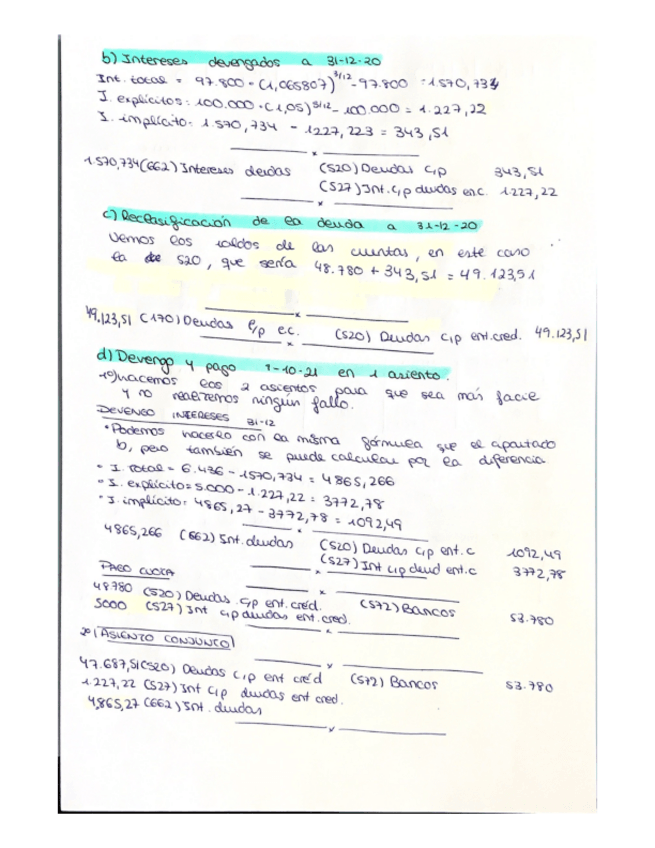 b) Intereses devengados a 31-12-20
Int. total = 97.800 · (1,065807)^3/12 - 97.800 = 1570,734
I. explícitos = 100.000 · (1,05)^3/12 - 100.000 = 1.227,22
I. implícito = 1.570,734 - 1227,223 = 343,51
1.570,734 (662) Intereses deudas (520) Deudas c/p 343,51
(527) Int. c/p deudas en.c. 1227,22
c) Reclasificación de la deuda a 31-12-20
Vemos los saldos de las cuentas, en este caso
la de 520, que sería 48.780 + 343,51 = 49.123,51
49.123,51 (170) Deudas l/p e.c. (520) Deudas c/p ent.cred. 49.123,51
d) Devengo y pago 1-10-21 en 1 asiento.
1º) hacemos los 2 asientos para que sea más facil
y no realizemos ningún fallo.
DEVENGO INTERESES 31-12
• Podemos hacerlo con la misma fórmula que el apartado
b, pero también se puede calcular por la diferencia
• I. total = 6.436 - 1570,734 = 4865,266
• I. explícito = 5.000 - 1.227,22 = 3772,78
• I. implícito: 4865,27 - 3772,78 = 1092,49
4865,266 (662) Int. deudas (520) Deudas c/p ent.c 1092,49
(527) Int c/p deud ent.c 3772,78
PAGO CUOTA
48780 (520) Deudas c/p ent. créd. (572) Bancos 53.780
5000 (527) Int c/p deudas ent. cred.
2º) ASIENTO CONJUNTO
47.687,51 (520) Deudas c/p ent créd (572) Bancos 53.780
1.227,22 (527) Int c/p deudas ent cred.
4,865,27 (662) Int. deudas